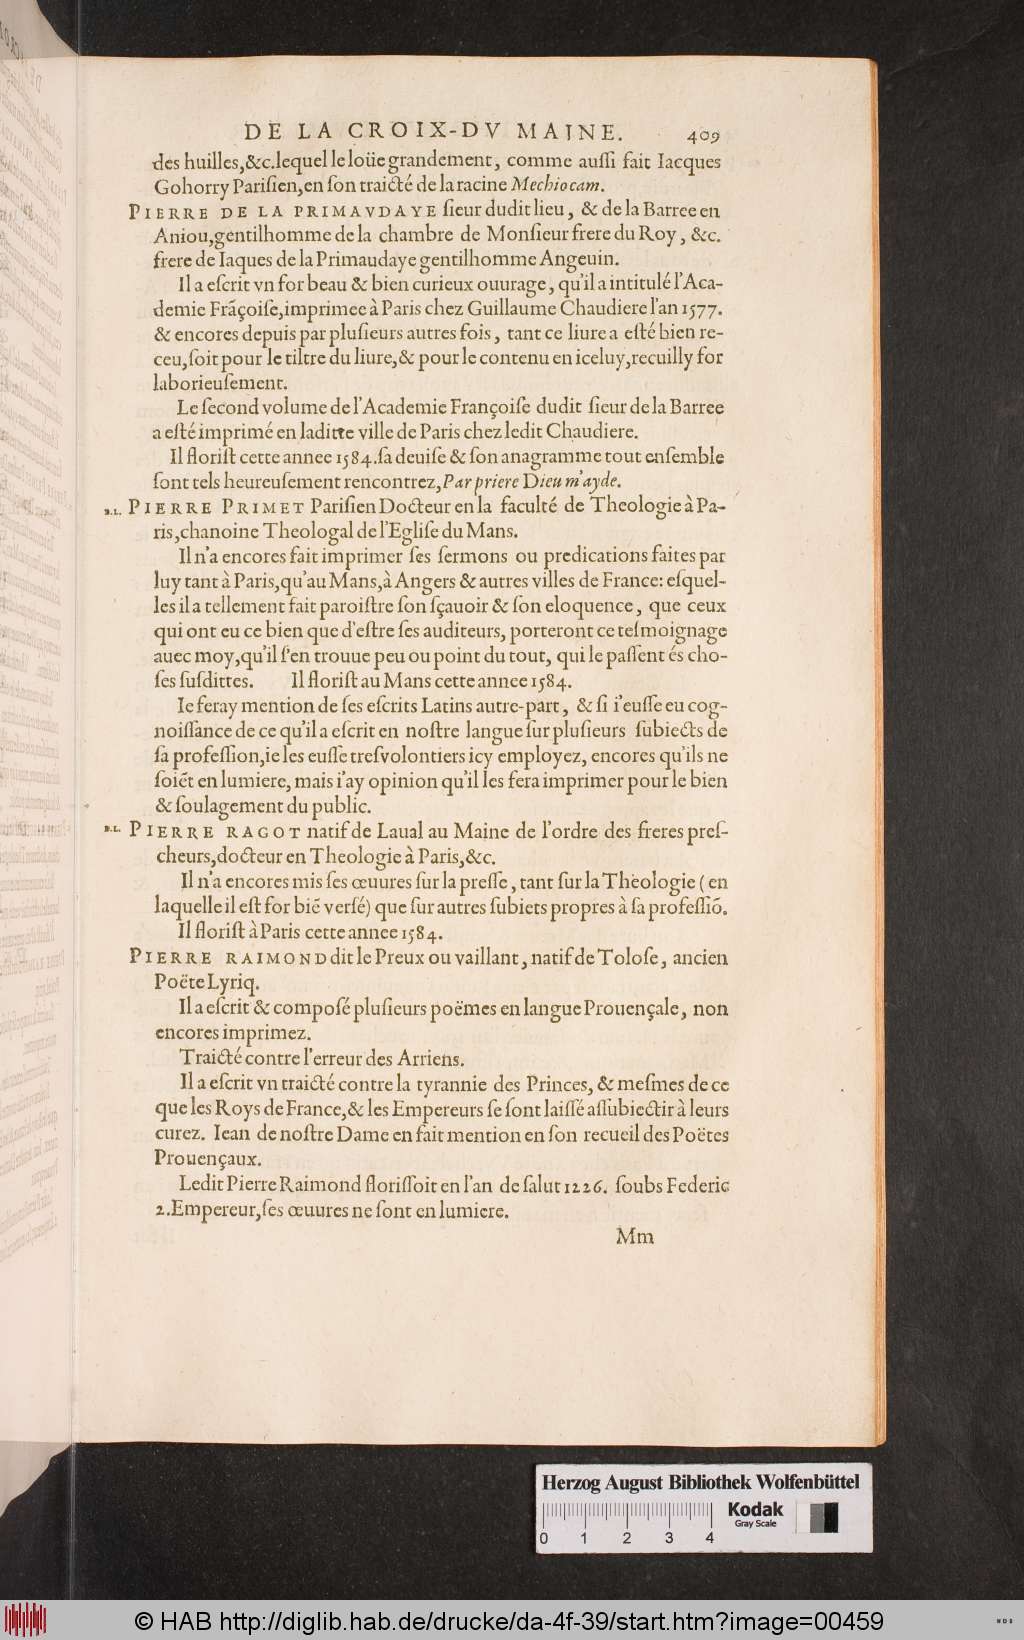 DE LA CROIX-DV MAINE. 409
des huilles,&c.lequel le loüe grandement, comme auſſi fait Iacques
Gohorry Pariſien,en ſon traicté de la racine Mechiocam.
PIERRE DE LA PRIMAVDAYE ſieur dudit lieu, & de la Barree en
Aniou,gentilhomme de la chambre de Monſieur frere du Roy, &c.
frere de Iaques de la Primaudaye gentilhomme Angeuin.
Il a eſcrit vn for beau & bien curieux ouurage, qu'il a intitulé l'Aca-
demie Frãçoiſe,imprimee à Paris chez Guillaume Chaudiere l'an 1577.
& encores depuis par pluſieurs autres fois, tant ce liure a eſté bien re-
ceu,ſoit pour le tiltre du liure,& pour le contenu en iceluy,recuilly for
laborieuſement.
Le ſecond volume de l'Academie Françoiſe dudit ſieur de la Barree
a eſté imprimé en laditte ville de Paris chez ledit Chaudiere.
Il floriſt cette annee 1584.ſa deuiſe & ſon anagramme tout enſemble
ſont tels heureuſement rencontrez,Par priere Dieu m'ayde.
B.L. PIERRE PRIMET Pariſien Docteur en la faculté de Theologie à Pa-
ris,chanoine Theologal de l'Egliſe du Mans.
Il n'a encores fait imprimer ſes ſermons ou predications faites par
luy tant à Paris,qu'au Mans,à Angers & autres villes de France: eſquel-
les il a tellement fait paroiſtre ſon ſçauoir & ſon eloquence, que ceux
qui ont eu ce bien que d'eſtre ſes auditeurs, porteront ce teſmoignage
auec moy,qu'il ſ'en trouue peu ou point du tout, qui le paſſent és cho-
ſes ſuſdittes. Il floriſt au Mans cette annee 1584.
Ie feray mention de ſes eſcrits Latins autre-part, & ſi i'euſſe eu cog-
noiſſance de ce qu'il a eſcrit en noſtre langue ſur pluſieurs ſubiects de
ſa profeſſion,ie les euſſe treſvolontiers icy employez, encores qu'ils ne
ſoiẽt en lumiere, mais i'ay opinion qu'il les fera imprimer pour le bien
& ſoulagement du public.
B.L. PIERRE RAGOT natif de Laual au Maine de l'ordre des freres preſ-
cheurs,docteur en Theologie à Paris,&c.
Il n'a encores mis ſes œuures ſur la preſſe, tant ſur la Theologie (en
laquelle il eſt for biẽ verſé) que ſur autres ſubiets propres à ſa profeſſiõ.
Il floriſt à Paris cette annee 1584.
PIERRE RAIMOND dit le Preux ou vaillant, natif de Toloſe, ancien
Poëte Lyriq.
Il a eſcrit & compoſé pluſieurs poëmes en langue Prouençale, non
encores imprimez.
Traicté contre l'erreur des Arriens.
Il a eſcrit vn traicté contre la tyrannie des Princes, & meſmes de ce
que les Roys de France,& les Empereurs ſe ſont laiſſé aſſubiectir à leurs
curez. Iean de noſtre Dame en fait mention en ſon recueil des Poëtes
Prouençaux.
Ledit Pierre Raimond floriſſoit en l'an de ſalut 1226. ſoubs Federic
2.Empereur,ſes œuures ne ſont en lumiere.
Mm
Herzog August Bibliothek Wolfenbüttel
0 1 2 3 4
Kodak
Gray Scale
© HAB http://diglib.hab.de/drucke/da-4f-39/start.htm?image=00459